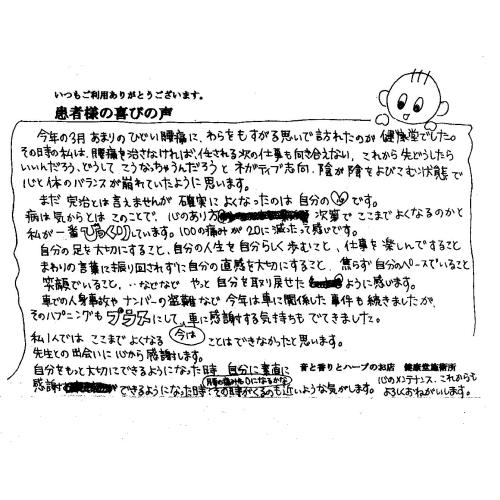 いつもご利用ありがとうございます。
患者様の喜びの声
今年の3月 あまりのひどい腰痛に、わらをもすがる思いで訪れたのが 健康堂でした。
その時の私は、腰痛を治さなければ、任される次の仕事も向き合えない、これから先どうしたら
いいんだろう、どうして こうなっちゃうんだろうと ネガティブ志向、陰が陰をよびこむ状態で
心と体のバランスが崩れていたように思います。
まだ 完治とは言えませんが 確実に よくなったのは 自分の です。
病は気からとは このことで、心のあり方 次第で ここまでよくなるのかと
私が一番 しています。100の痛みが 20に減った感じです。
自分の足を大切にすること、自分の人生を自分らしく歩むこと、仕事を楽しんですること
まわりの言葉に振り回されずに自分の直感を大切にすること、焦らず自分のペースでいること
笑顔でいること、…などなど やっと 自分を取り戻せた ように感じます。
車での人身事故や ナンバーの盗難など 今年は車に関係した事件も続きましたが、
そのハプニングも プラスにして、車に感謝する気持ちもでてきました。
私1人では ここまでよくなる 今は ことはできなかったと思います。
先生との出会いに心から感謝します。
自分をもっと大切にできるようになった時 自分に素直に
感謝 できるようになった時、その時がくるのも近いような気がします。
腰の痛みも0になるかな
音と香りとハーブのお店 健康堂施術所
心のメンテナンス、これからも
よろしくおねがいします。